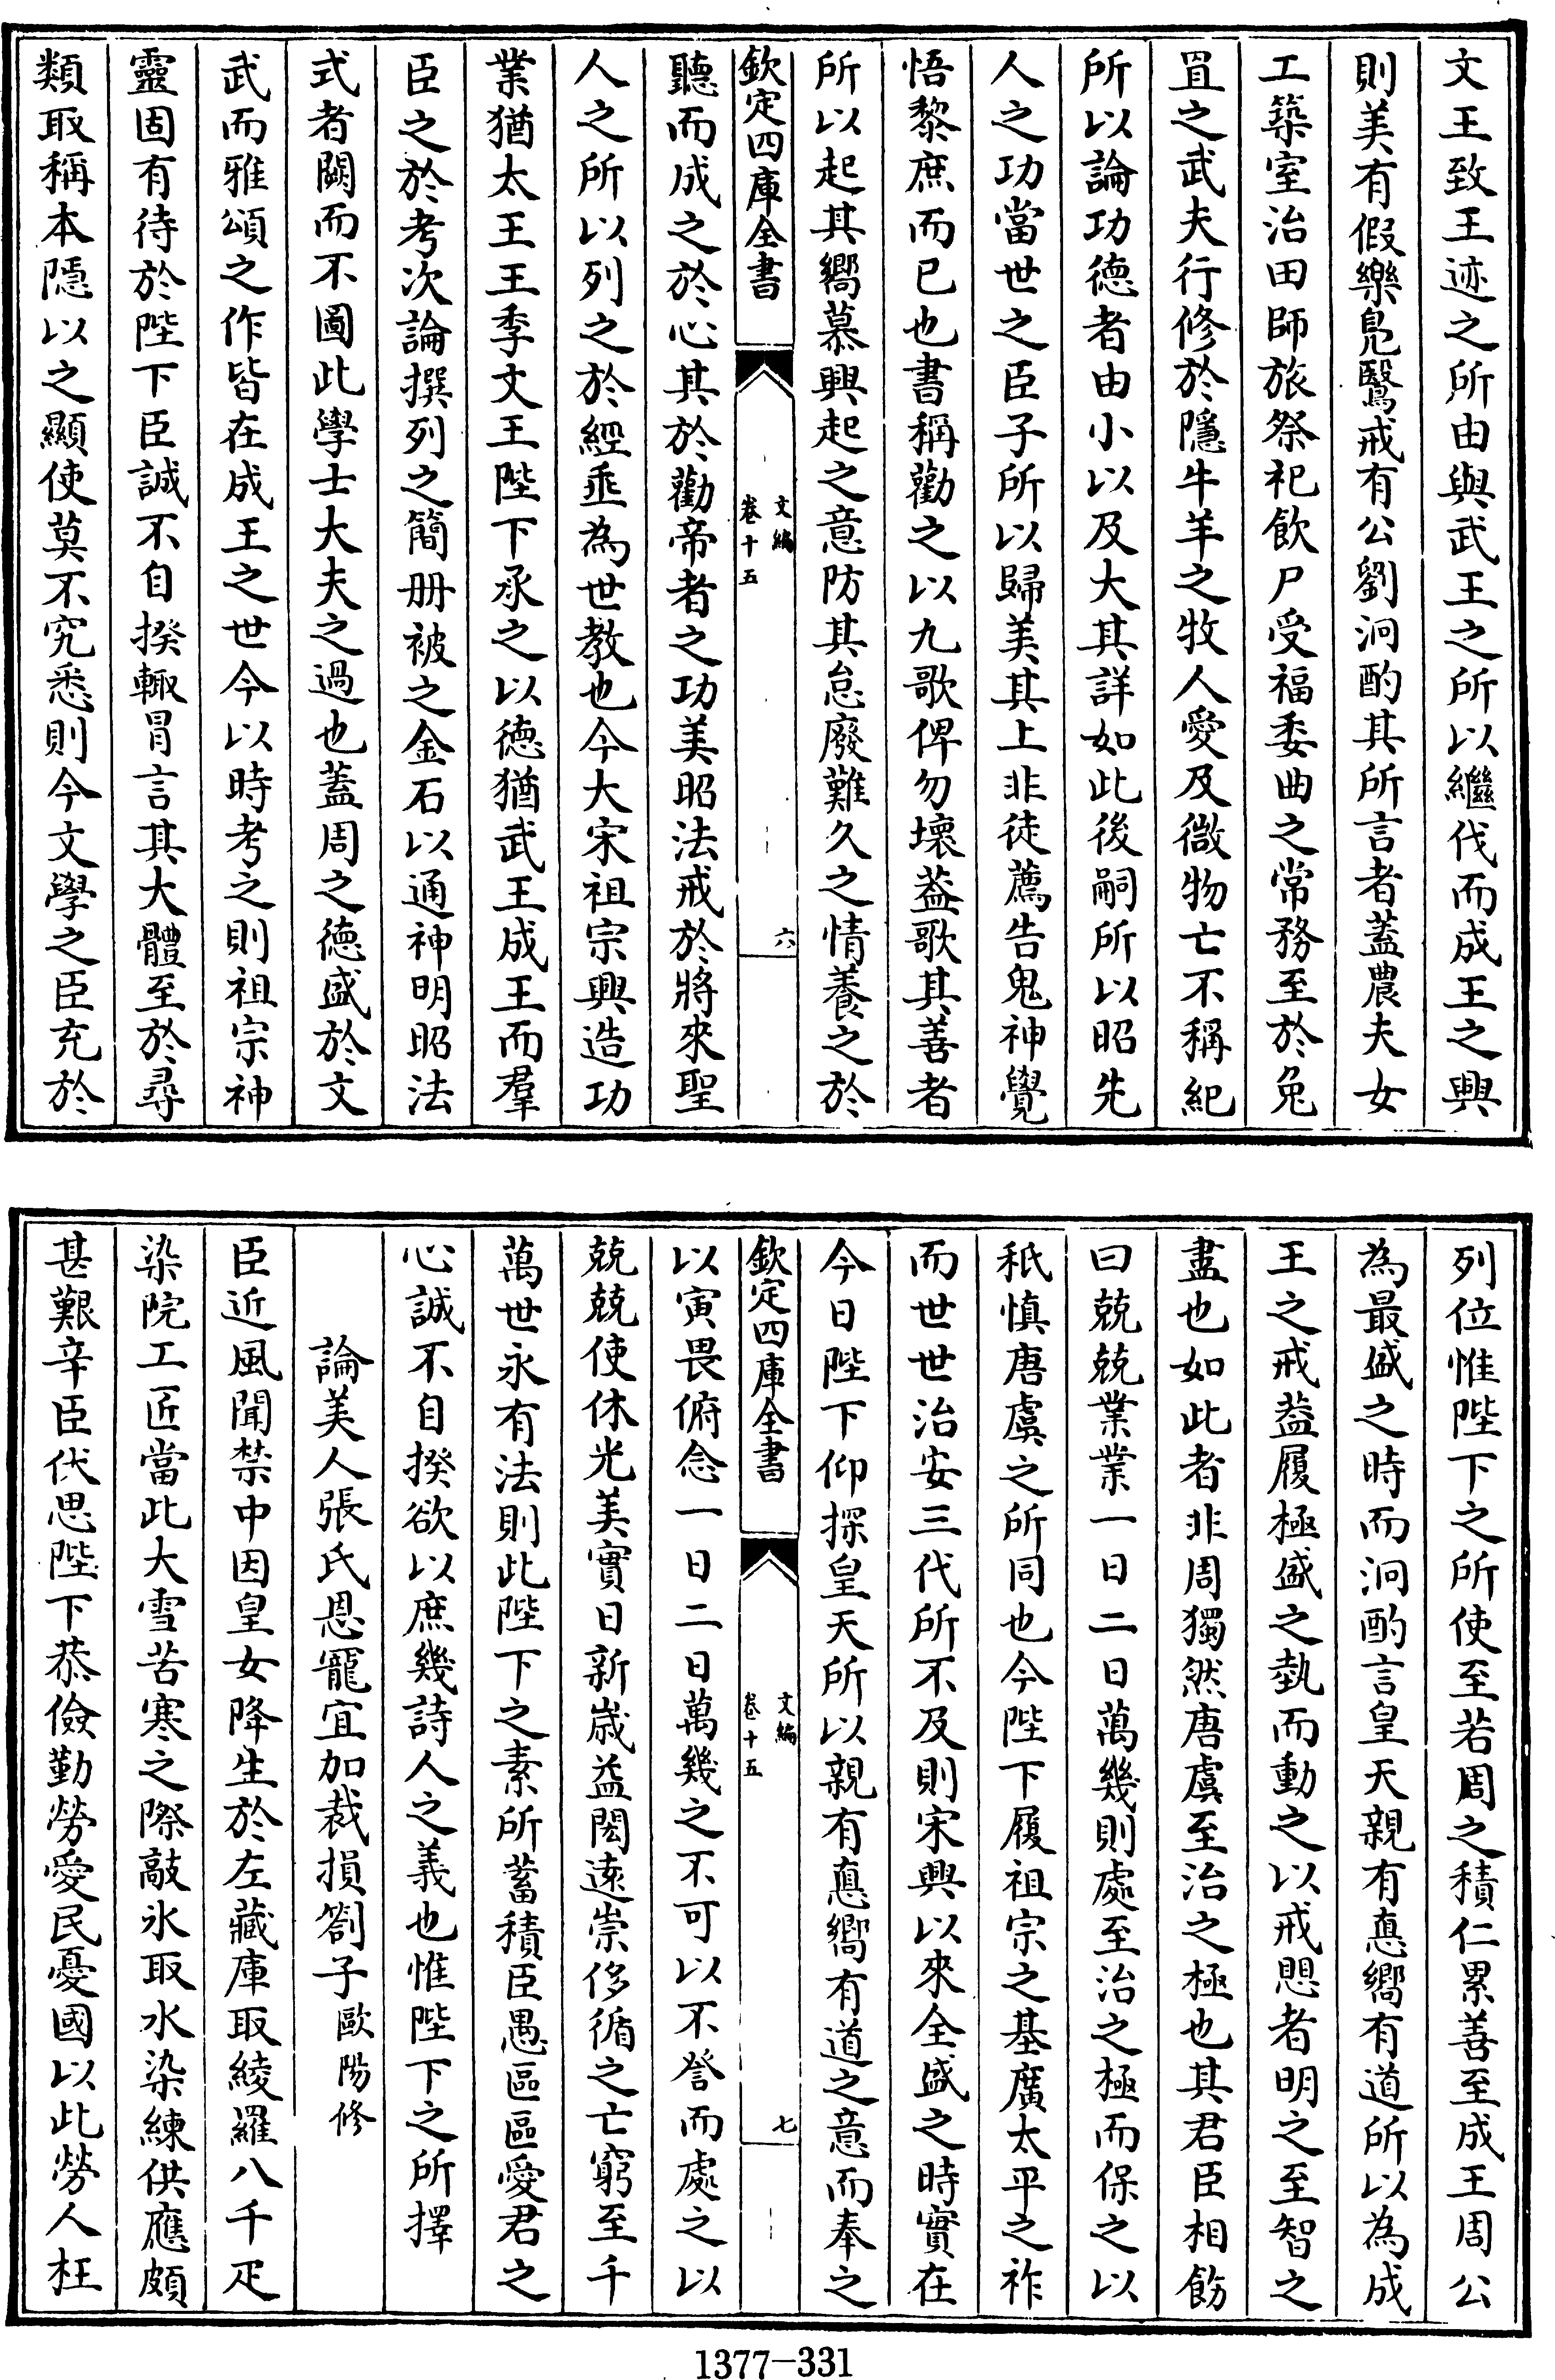 文王致王迹之所由與武王之所以繼伐而成王之興
則美有假樂鳬鷖戒有公劉泂酌其所言者蓋農夫女
工築室治田師旅祭祀飲尸受福委曲之常務至於兔
罝之武夫行修於隱牛羊之牧人愛及微物亡不稱紀
所以論功德者由小以及大其詳如此後嗣所以昭先
人之功當世之臣子所以歸美其上非徒薦告鬼神覺
悟黎庶而已也書稱勸之以九歌俾勿壞葢歌其善者
所以起其嚮慕興起之意防其怠廢難久之情養之於
欽定四庫全書
文編
卷十五
六
聽而成之於心其於勸帝者之功美昭法戒於將來聖
人之所以列之於經垂為世教也今大宋祖宗興造功
業猶太王王季文王陛下承之以德猶武王成王而羣
臣之於考次論撰列之簡册被之金石以通神明昭法
式者闕而不圖此學士大夫之過也蓋周之德盛於文
武而雅頌之作皆在成王之世今以時考之則祖宗神
靈固有待於陛下臣誠不自揆輙冐言其大體至於尋
類取稱本隱以之顯使莫不究悉則今文學之臣充於
列位惟陛下之所使至若周之積仁累善至成王周公
為最盛之時而泂酌言皇天親有惪嚮有道所以為成
王之戒葢履極盛之埶而動之以戒愳者明之至智之
盡也如此者非周獨然唐虞至治之極也其君臣相飭
曰兢兢業業一日二日萬幾則處至治之極而保之以
秖慎唐虞之所同也今陛下履祖宗之基廣太平之祚
而世世治安三代所不及則宋興以來全盛之時實在
今日陛下仰探皇天所以親有惪嚮有道之意而奉之
欽定四庫全書
文編
卷十五
七
以寅畏俯念一日二日萬幾之不可以不詧而處之以
兢兢使休光美實日新歲益閎遠崇侈循之亡窮至千
萬世永有法則此陛下之素所蓄積臣愚區區愛君之
心誠不自揆欲以庶幾詩人之義也惟陛下之所擇
論美人張氏恩寵宜加裁損劄子歐陽修
臣近風聞禁中因皇女降生於左藏庫取綾羅八千疋
染院工匠當此大雪苦寒之際敲氷取水染練供應頗
甚艱辛臣伏思陛下恭儉勤勞愛民憂國以此勞人枉
1377-331